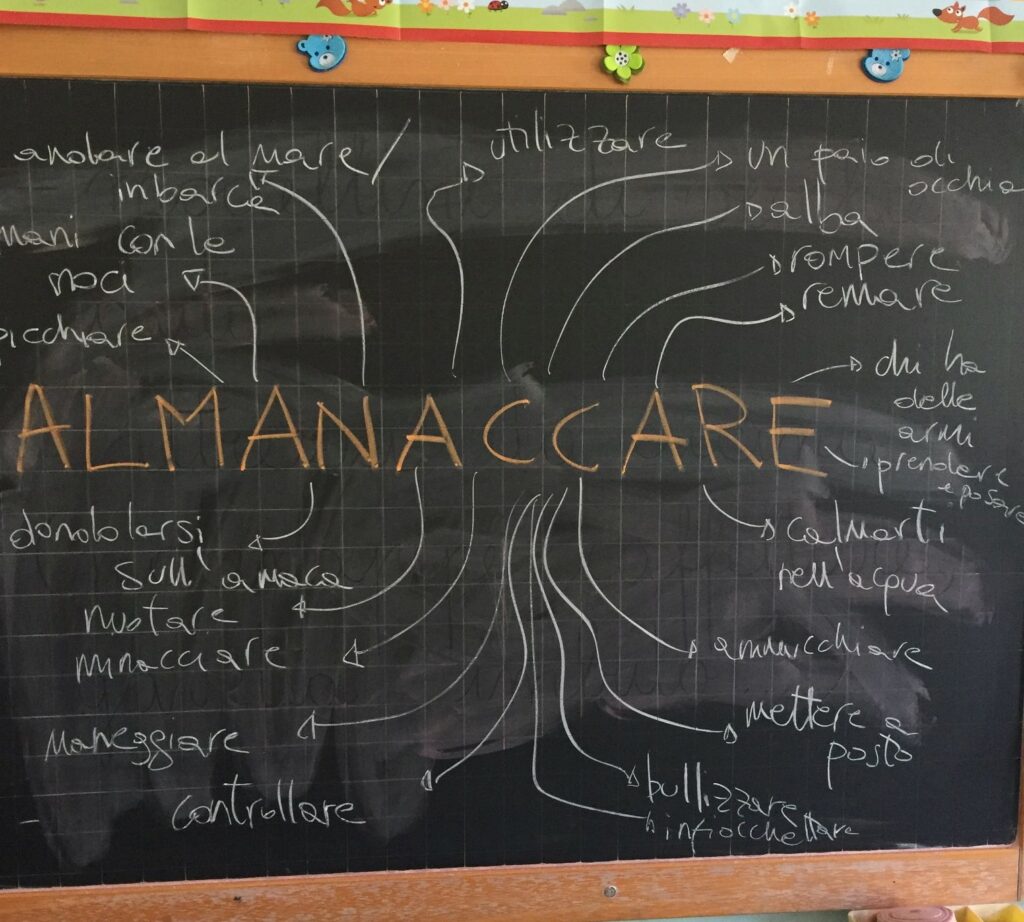 andare al mare /
in barca
mani con le
noci
picchiare
utilizzare
un paio di
occhia
alba
rompere
remare
chi ha
delle
armi
prendere
e posare
ALMANACCARE
dondolarsi
sull'amaca
nuotare
minacciare
maneggiare
controllare
calmarti
nell'acqua
ammucchiare
mettere a
posto
bullizzare
infiocchettare